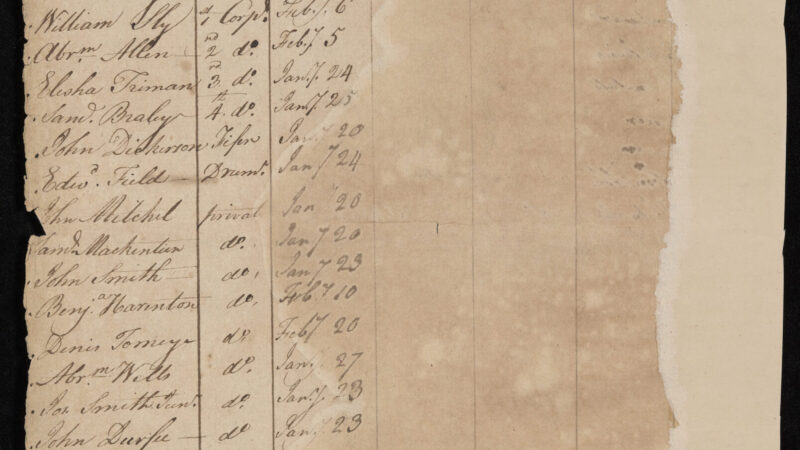 William Sly 1st Corpl. Feby. 6
Abrm. Allen 2nd do. Feby. 5
Elisha Triman 3rd do. Jany. 24
Samd. Braley 4th do. Jany. 25
John Dickerson Fifer Jany. 20
Edwd. Field Drumr. Jany 24
John Mitchel privat Jany 20
Samd. Mackintier do. Jany 20
John Smith do. Jany 23
Benja. Harinton do. Feby. 10
Denis Tomeys do. Feby 20
Abrm. Wells do. Jany. 27
Jos Smith Junr. do. Jany. 23
John Durfee do Jany 23